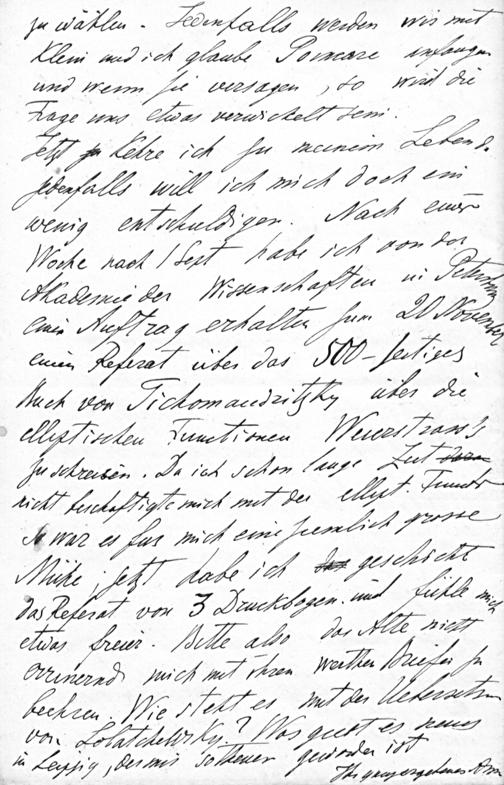 zu wählen. Jedenfalls werden wir mit
Klein und ich glaube Poincare anfangen
und wenn sie versagen, so wird die
Frage uns etwas verwickelt sein.
Jetzt kehre ich zu meinem Leben d.
Jedenfalls will ich mich doch ein
wenig entschuldigen. Nach einer
Woche nach 1 Sept habe ich von der
Akademie der Wissenschaften in
ein Auftrag erhalten zum 20 November
einen Referat über das 500-seitiges
Buch von Tichomandritzky über die
elliptischen Functionen Weierstrass
zu schreiben. Da ich schon lange Zeit
nicht beschaftigte mich mit der ellipt.
so war es fur mich eine ziemlich grosse
Mühe; jetzt habe ich geschickt
das Referat von 3 Druckbogen und fühle mich
etwas freier. Bitte also das Alte nicht
errinernd mich mit ihren werthen Briefen zu
beehren. Wie steht es mit der Uebersetzun
von Lobatchewsky? Was giebt es neues
in Leipzig, der mir so theuer geworden ist
Ihr ganz ergebenes